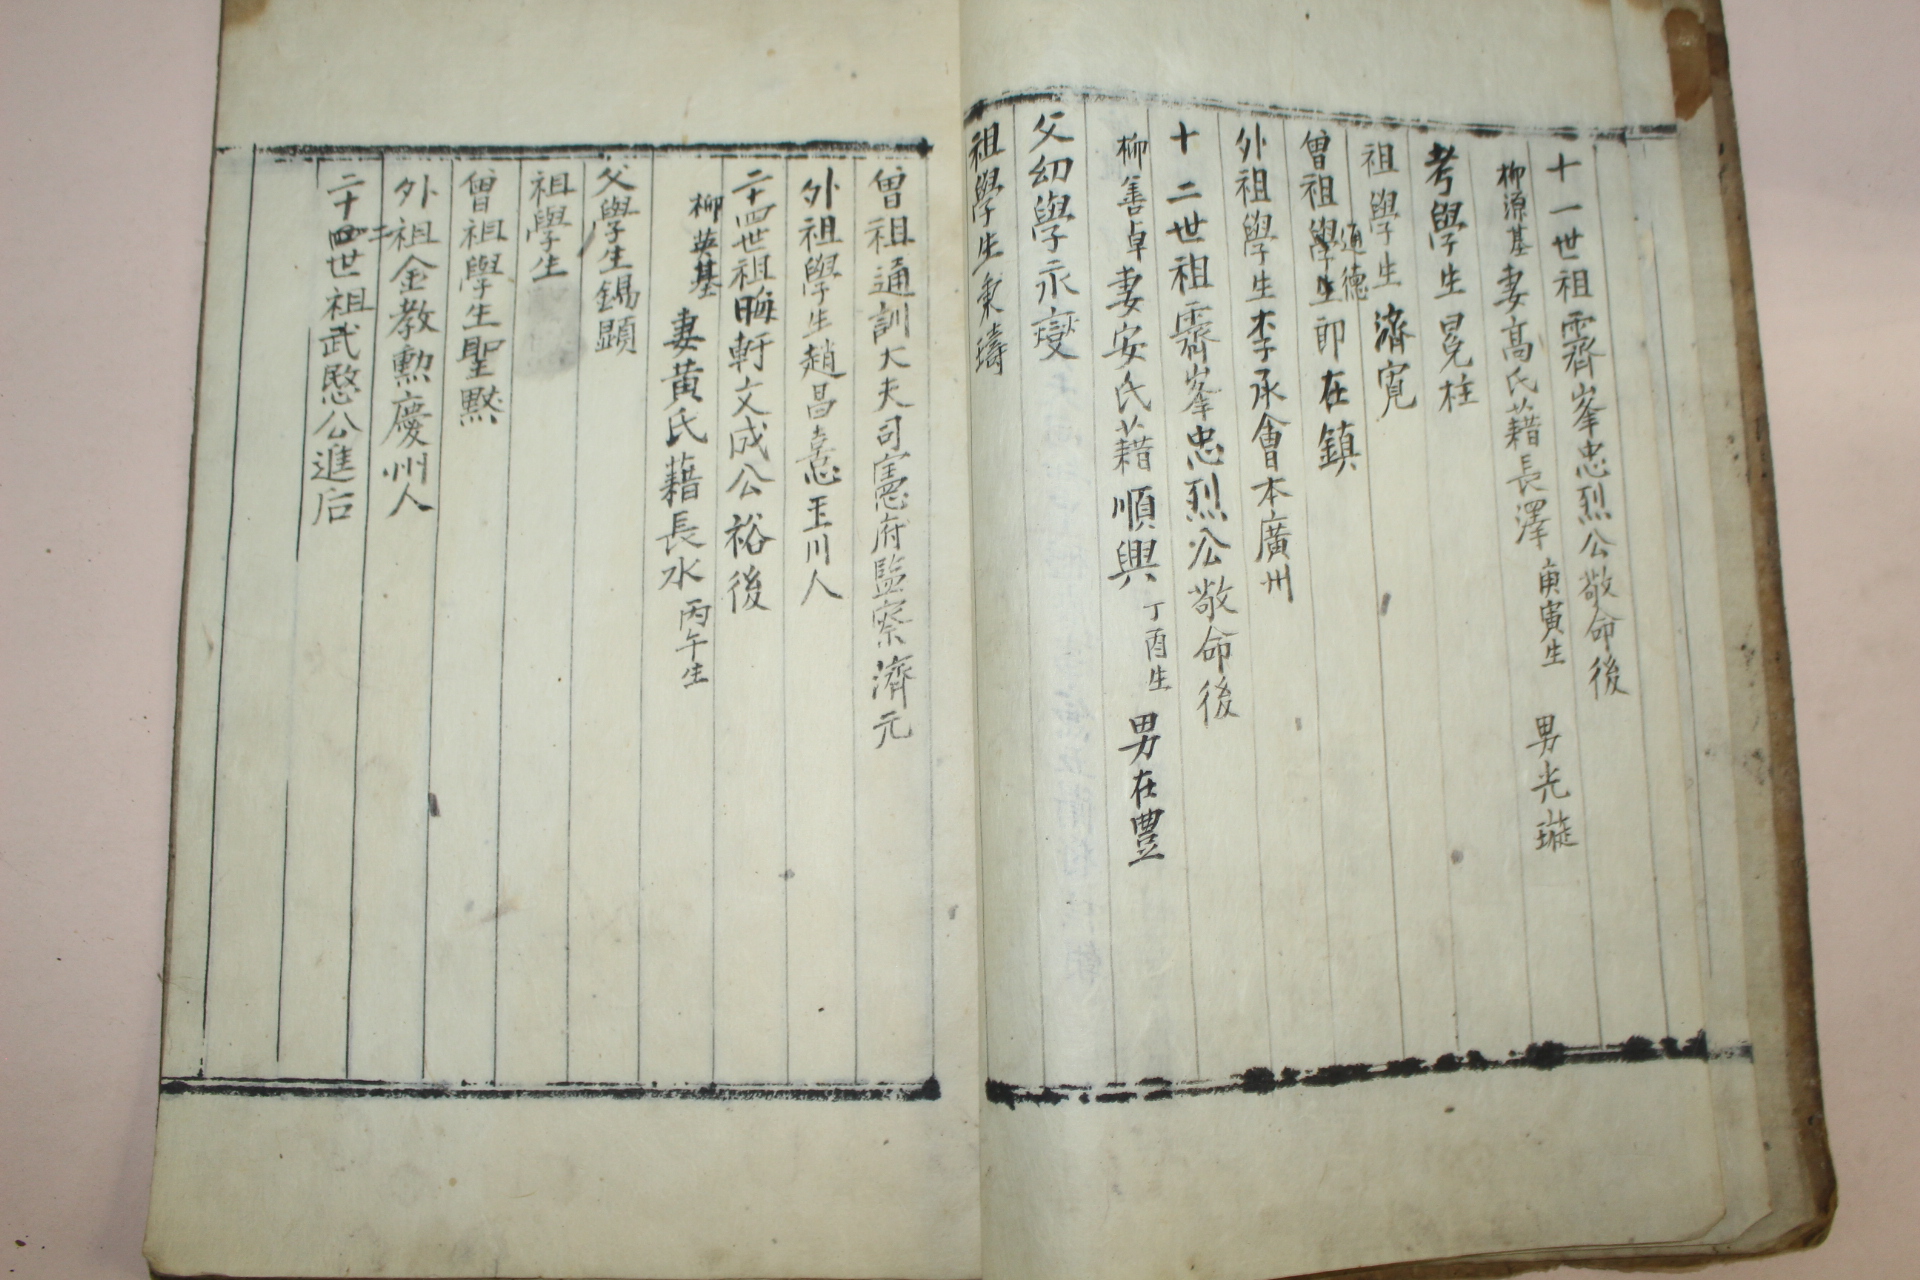 十一世祖霽峯忠烈公敬命後
柳源基妻高氏藉長澤 庚寅生 男光璇
考學生冕柱
祖學生濟寬
曾祖學生通德郎在鎮
外祖學生李承會本廣州
十二世祖霽峯忠烈公敬命後
柳善卓妻安氏藉順興 丁酉生 男在豊
父幼學永燮
祖學生秉璹
曾祖通訓大夫司憲府監察濟元
外祖學生趙昌憙玉川人
二十四世祖晦軒文成公裕後
柳英基妻黃氏藉長水 丙午生
父學生錫顯
祖學生
曾祖學生聖黙
外祖金教勲慶州人
二十二世祖武愍公進后